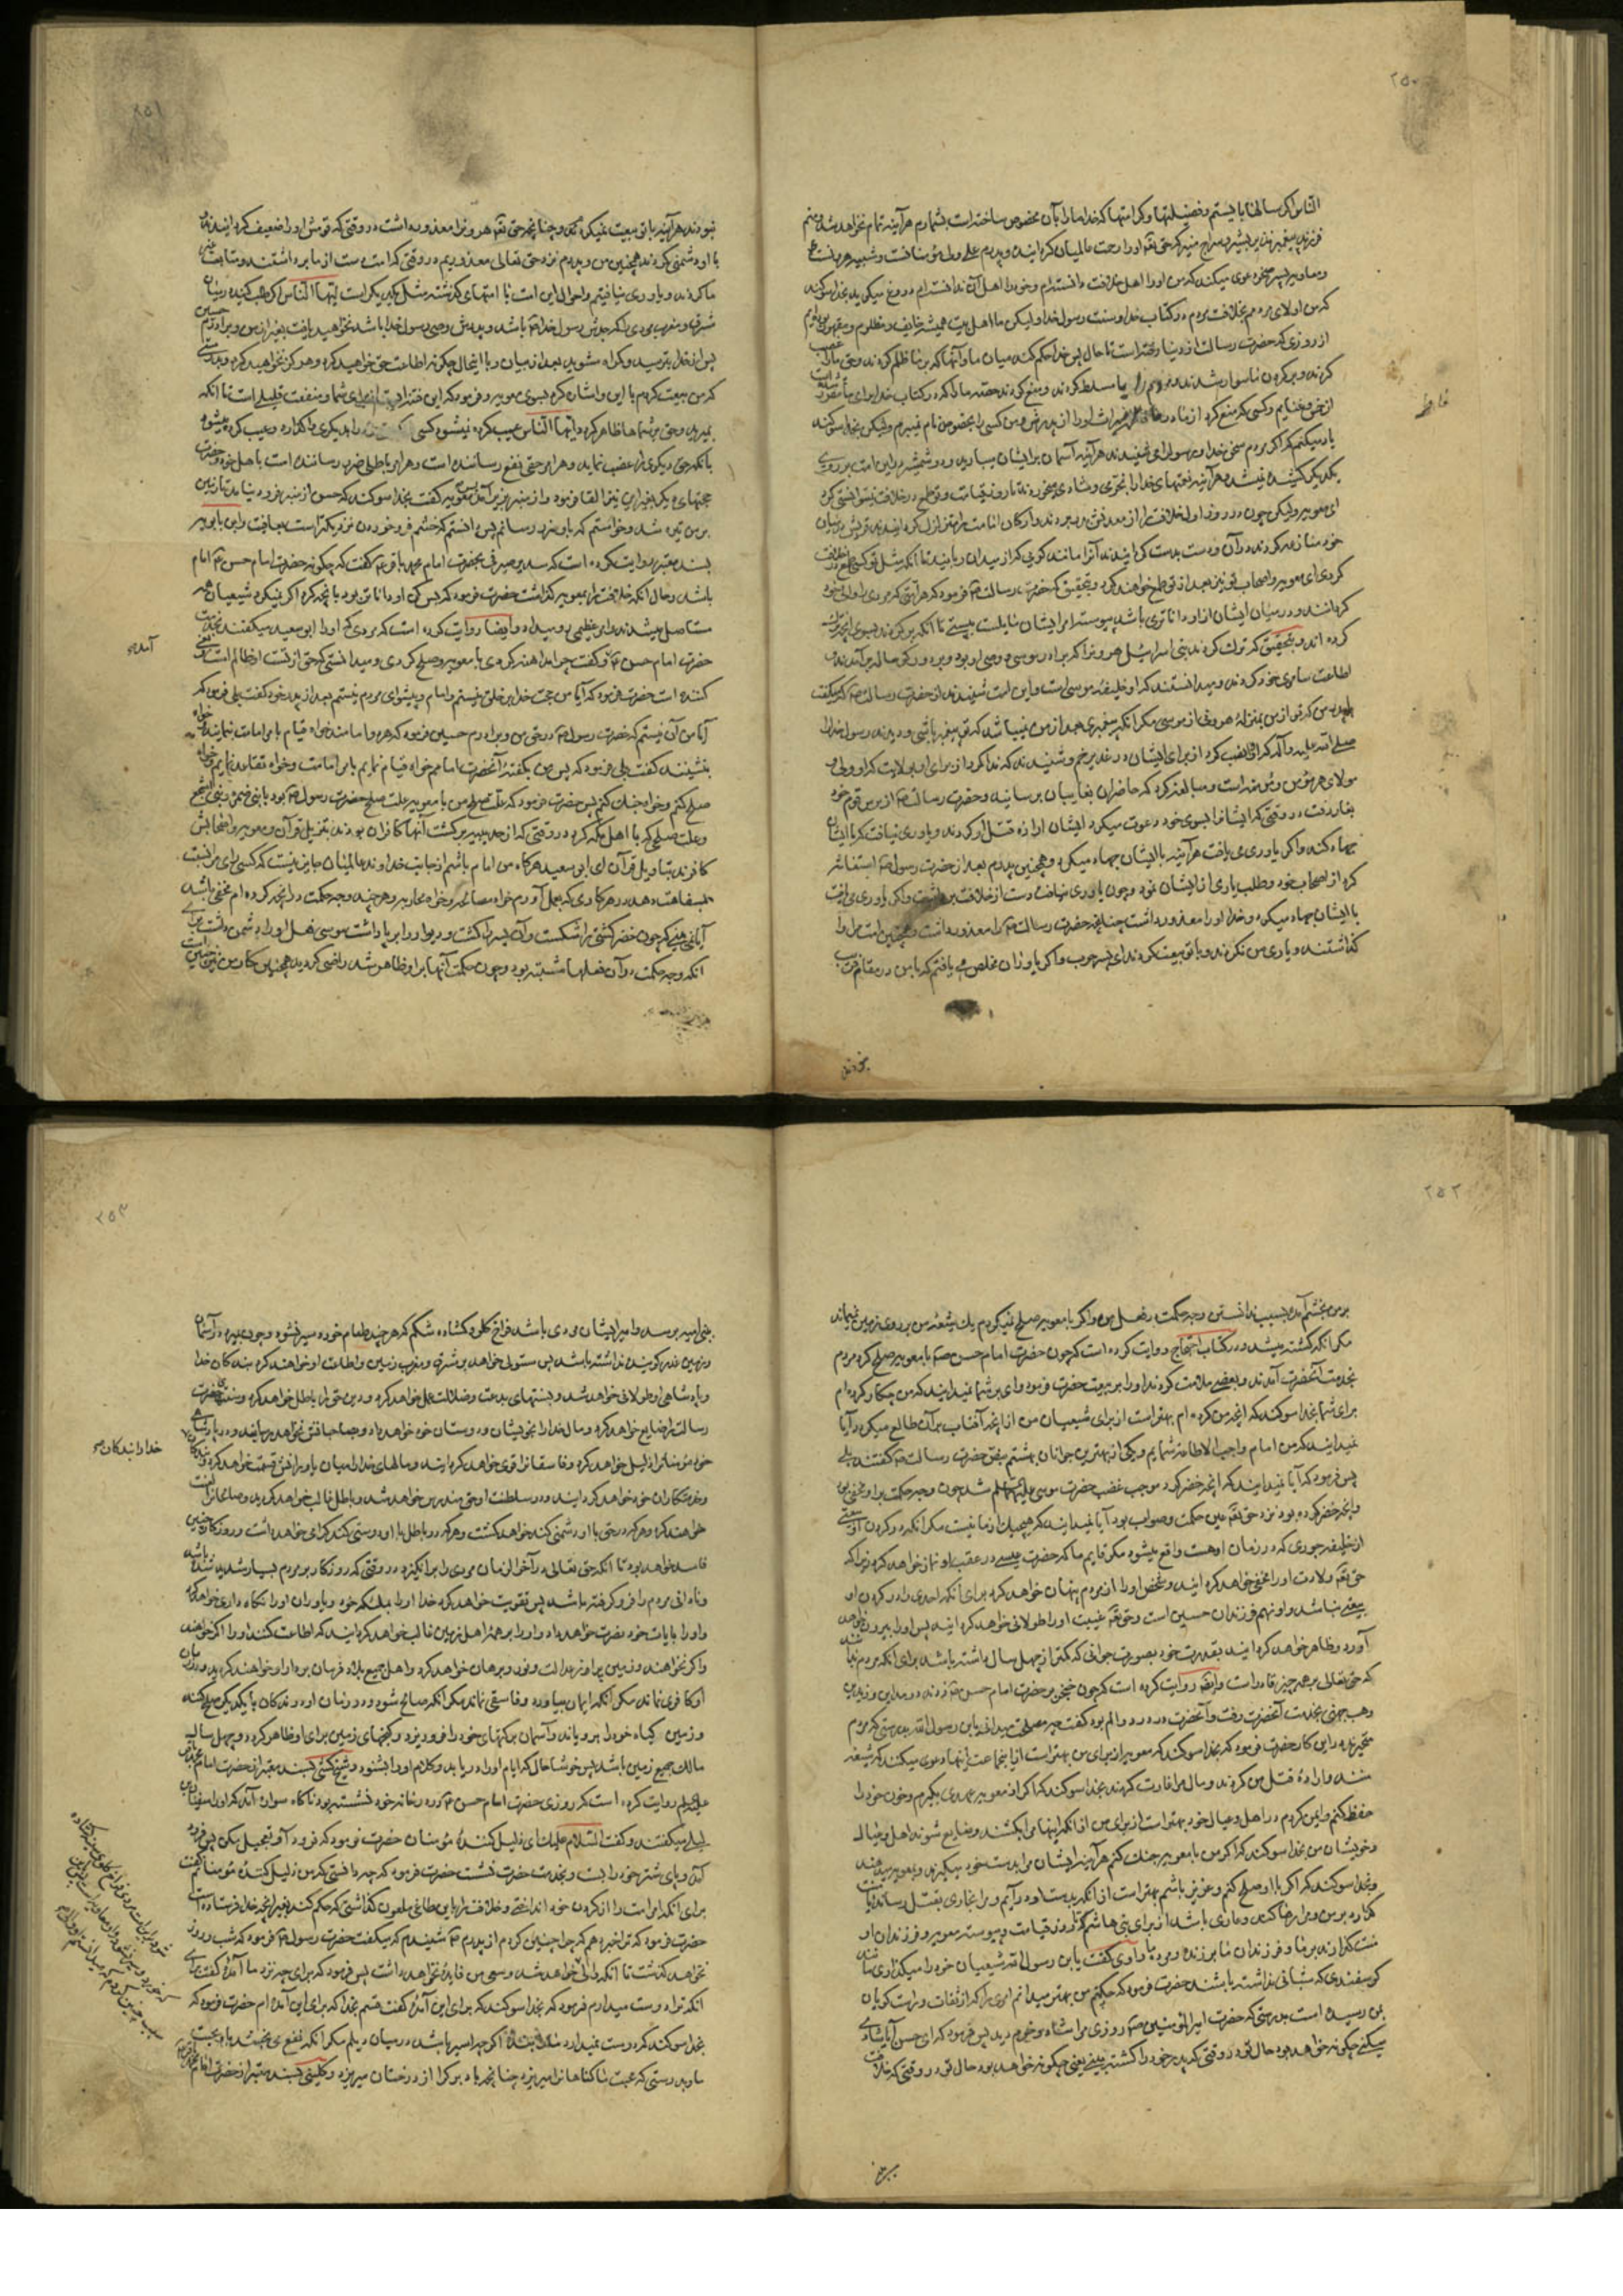 ۲۵۰
الناس اگر سالها بایستم و فضیلتها و کرامتها که خدا ما را بآن مخصوص ساخته است بشمارم هرآینه تمام نخواهد شد و منم
فرزند پیغمبر نذیر بشیر و سراج منیر که حق تعالی او را رحمت عالمیان گردانیده و پدرم علی ولی مؤمنانست و شبیه هارونست
و معاویه پسر صخر دعوی میکند که من او را اهل خلافت دانسته‌ام و خود را اهل آن ندانسته‌ام دروغ میگوید بخدا سوگند
که من اولای مردمم بخلافت مردم در کتاب خدا و سنت رسول خدا و لیکن ما اهل بیت همیشه خایف و مظلوم و مقهور بوده‌ایم
از روزی که حضرت رسالت از دنیا رفته است تا حال پس خدا حکم کند میان ما و آنها که بر ما ظلم کردند و حق ما را غصب
کردند و بر گردن ما سوار شدند و مردم را بر ما مسلط کردند و منع کردند حصه ما که در کتاب خدا برای ما مقرر شده است
از خمس و غنایم و کسی که منع کرد از مادر ما فاطمه میراث او را از پدرش و من کسی را بخصوص نام نمیبرم ولیکن بخدا سوگند
یاد میکنم که اگر مردم سخن خدا و رسول او می شنیدند هرآینه آسمان بر ایشان میبارید و دو شمشیر در این امت بر روی
یکدیگر کشیده نمیشد و هرآینه نعمتهای خدا را بخرمی و شادی میخوردند تا روز قیامت و تو طمع در خلافت نمیتوانستی کرد
ای معویه ولیکن چون در روز اول خلافت را از معدنش بدر بردند و ارکان امامت را متزلزل گردانیدند قریش در میان
خود منازعه کردند در آن و دست بدست گردانیدند آنرا مانند گویی که از میدان ربایند تا آنکه مثل تو کسی طمع در خلافت
کردی ای معویه و اصحاب تو نیز بعد از تو طمع خواهند کرد و بتحقیق که حضرت رسالت ص فرمود که هر امتی که مردی را والی خود
گردانند و در میان ایشان از او داناتری باشد پیوسته امر ایشان مایل است به پستی تا آنکه برگردند بسوی آنچه ترک
کرده اند و بتحقیق که ترک کردند بنی اسرائیل هرون را که برادر موسی و وصی او بود و بر دور گوساله برآمدند و
اطاعت سامری خود کردند و میدانستند که او خلیفه موسی است و این امت شنیدند از حضرت رسالت ص که میگفت
پدرم من که تو از من بمنزله هرونی از موسی مگر آنکه پیغمبری بعد از من نمیباشد که تو پیغمبر باشی و دیدند رسول خدا را
صلی الله علیه و آله که او را نصب کرد از برای ایشان در غدیر خم و شنیدند که ندا کرد از برای او بولایت که او ولی و
مولای هر مؤمن و مؤمنه است و مبالغه کرد که حاضران بغایبان برسانند و حضرت رسالت ص از بیم قوم خود
بغار رفت در وقتی که ایشان را بسوی خود دعوت میکرد و ایشان اراده قتل او کردند و یاوری نیافت که با ایشان
جهاد کند و اگر یاوری می یافت هرآینه با ایشان جهاد میکرد و همچنین پدرم بعد از حضرت رسول ص استغاثه
کرد از اصحاب خود و طلب یاری از ایشان نمود و چون یاوری نیافت دست از خلافت برداشت و اگر یاوری می یافت
با ایشان جهاد میکرد و خدا او را معذور داشت چنانچه حضرت رسالت ص را معذور داشت و همچنین امت مرا وا
گذاشتند و یاری من نکردند و با تو بیعت کردند ای پسر حرب و اگر یاوران مخلص می یافتم که با من در مقام فریب
فاطمه
نبودند
۲۵۱
نبودند هرآینه با تو بیعت نمیکردم و چنانچه حق تعالی هرون را معذور داشت در وقتی که قومش او را ضعیف گردانیدند و
با او دشمنی کردند همچنین من و پدرم نزد حق تعالی معذوریم در وقتی که امت دست از ما برداشتند و متابعت غیر
ما کردند و یاوری نیافتیم و احوال این امت با امتهای گذشته مثل یکدیگر است ایها الناس اگر طلب کنید در میان
مشرق و مغرب مردی را که جدش رسول خدا ص باشد و پدرش وصی رسول خدا باشد نخواهید یافت بغیر از من و برادرم حسین
پس از خدا بترسید و گمراه مشوید بعد از بیان و با اینحال چگونه اطاعت حق خواهید کرد و هرگز نخواهید کرد و بدرستی
که من بیعت کردم با این و اشاره کرد بسوی معویه و فرمود که این فتنه ایست از برای شما و منفعت قلیلی است تا آنکه
بمیرید و حق بر شماها ظاهر گردد ایها الناس عیب کرده نمیشود کسی که حق خود را بدیگری واگذارد و عیب کرده میشود
با آنکه حق دیگری را غصب نماید و هر امر حقی نفع رساننده است و هر امر باطلی ضرر رساننده است باهل خود و حضرت
حجتهای دیگر بغیر این نیز القا فرمود و از منبر بزیر آمد پس معویه گفت بخدا سوگند که حسن از منبر فرود نیامد تا زمین
بر من تیره شد و خواستم که باو ضرر رسانم پس دانستم که خشم فروخوردن نزدیکتر است بعافیت و ابن بابویه
بسند معتبر روایت کرده است که سدیر صیرفی بحضرت امام محمد باقر ع گفت که چگونه حضرت امام حسن ع امام
باشد و حال آنکه خلافت را بمعویه گذاشت حضرت فرمود که بس کن او داناتر بود بآنچه کرد اگر نمیکرد شیعیان همه
مستاصل میشدند و امر عظیمی رو میداد و ایضا روایت کرده است که مردی که او را ابو سعید میگفتند بخدمت
حضرت امام حسن ع و گفت چرا مداهنه کردی با معویه و صلح کردی و میدانستی که حق از تست و او ظالم است و بغی
کننده است حضرت فرمود که آیا من حجت خدا بر خلق نیستم و امام و پیشوای مردم نیستم بعد از پدر خود گفت بلی فرمود که
آیا من آن نیستم که حضرت رسول ص در حق من و برادرم حسین فرمود که هر دو امامند خواه قیام بامر امامت نمایند و خواه
بنشینند گفت بلی فرمود که پس من بگفته آنحضرت امامم خواه قیام نمایم بامر امامت و خواه تقاعد نمایم و خواه
صلح کنم و خواه جنگ کنم پس حضرت فرمود که علت صلح من با معویه علت صلح حضرت رسول ص بود با بنی ضمره و بنی اشجع
و علت صلحی که با اهل مکه کرد در وقتی که از حدیبیه برگشت آنها کافران بودند بتنزیل قرآن و معویه و اصحابش
کافرند بتاویل قرآن ای ابو سعید هرگاه من امام باشم از جانب خداوند عالمیان جایز نیست که کسی رای مرا نسبت
بسفاهت دهد در هر کاری که بعمل آورم خواه مصالحه و خواه محاربه و هرچند وجه حکمت در آنچه کرده ام مخفی باشد
آیا نمی بینی که چون خضر کشتی را شکست و آن پسر را کشت و دیوار را برپا داشت موسی فعل او را دشمن داشت برای
آنکه وجه حکمت در آن فعلها مشتبه بود و چون حکمت آنها بر او ظاهر شد راضی گردید همچنین کار من نیز چنین است
آمد
۲۵۲
بر من بخشم آمدید بسبب ندانستن وجه حکمت در فعل من و اگر با معویه صلح نمیکردم یک شیعه من بر روی زمین نمیماند
مگر آنکه کشته میشد و در کتاب احتجاج روایت کرده است که چون حضرت امام حسن ص با معویه صلح کرد مردم
بخدمت آنحضرت آمدند و بعضی ملامت کردند او را بر بیعت حضرت فرمود وای بر شما نمیدانید که من چکار کرده ام
برای شما بخدا سوگند که آنچه من کرده ام بهتر است از برای شیعیان من از آنچه آفتاب بر آن طالع میگردد آیا
نمیدانید که من امام واجب الاطاعه شمایم و یکی از بهترین جوانان بهشتم بنص حضرت رسالت ص گفتند بلی
پس فرمود که آیا نمیدانید که آنچه خضر کرد موجب غضب حضرت موسی علیه السلام شد چون وجه حکمت بر او مخفی بود
و آنچه خضر کرده بود نزد حق تعالی عین حکمت و صواب بود آیا نمیدانید که هیچیک از ما نیست مگر آنکه در گردن او بیعتی
از خلیفه جوری که در زمان او هست واقع میشود مگر قایم ما که حضرت عیسی در عقب او نماز خواهد کرد زیرا که
حق تعالی ولادت او را مخفی خواهد گردانید و شخص او را از مردم پنهان خواهد کرد برای آنکه احدی را در گردن او
بیعتی نباشد و او نهم فرزندان حسین است و حق تعالی غیبت او را طولانی خواهد گردانید پس او را بیرون خواهد
آورد و ظاهر خواهد گردانید بقدرت خود بصورت جوانی که کمتر از چهل سال داشته باشد برای آنکه مردم بدانند
که حق تعالی بر همه چیز قادر است و ایضا روایت کرده است که چون خنجر بر حضرت امام حسن ع زدند در مداین و زید بن
وهب جهنی بخدمت آنحضرت رفت و آنحضرت در درد و الم بود گفت چه مصلحت میدانی یابن رسول الله بدرستی که مردم
متحیرند در این کار حضرت فرمود که بخدا سوگند که معویه از برای من بهتر است از این جماعت اینها دعوی میکنند که شیعه
منند و اراده قتل من کردند و مال مرا غارت کردند بخدا سوگند که اگر از معویه عهدی بگیرم و خون خود را
حفظ کنم و ایمن گردم در اهل و عیال خود بهتر است از برای من از آنکه اینها مرا بکشند و ضایع شوند اهل و عیال
و خویشان من بخدا سوگند که اگر من با معویه جنگ کنم هرآینه ایشان مرا بدست خود میگیرند و بمعویه میدهند
و بخدا سوگند که اگر با او صلح کنم و عزیز باشم بهتر است از آنکه بدست او درآیم و مرا بخاری بقتل رساند یا منت
گذارد بر من و مرا رها کند و عاری باشد از برای بنی هاشم تا روز قیامت و پیوسته معویه و فرزندان او
منت گذارند بر ما و فرزندان ما بر زنده و مرده ما راوی گفت یابن رسول الله شیعیان خود را میگذاری مانند
گوسفندی که شبانی نداشته باشند حضرت فرمود که چکنم من بهتر میدانم امری را که از ثقات و راست گویان
بمن رسیده است بدرستی که حضرت امیر المؤمنین ص روزی مرا شاد و خرم دید پس فرمود که ای حسن آیا شادی
میکنی چگونه خواهد بود حال تو در وقتی که پدر خود را کشته بینی یعنی چگونه خواهد بود حال تو در وقتی که خلافت
۲۵۳
بنی امیه برسد و امیر ایشان مردی باشد فراخ گلو و گشاده شکم که هرچند طعام خورد سیر نشود و چون بمیرد در آسمان
و زمین عذر گوینده نداشته باشد پس مستولی خواهد بر شرق و مغرب زمین و اطاعت او خواهند کرد بندگان خدا
و پادشاهی او طولانی خواهد شد و بسنتهای بدعت و ضلالت عمل خواهد کرد و دین حق را باطل خواهد کرد و سنت حضرت
رسالت را ضایع خواهد کرد و مال خدا را بخویشان و دوستان خود خواهد داد و بصاحبانش نخواهد رسانید و در پادشاهی
خود مؤمنان را ذلیل خواهد کرد و فاسقان را قوی خواهد گردانید و مالهای خدا را میان یاورانش قسمت خواهد کرد و بندگان
و خدمتکاران خود خواهد گردانید و در سلطنت او حق مندرس خواهد شد و باطل غالب خواهد گردید و صالحان را لعنت
خواهند کرد و هر که در حق با او دشمنی کند خواهد کشت و هر که در باطل با او دوستی کند گرامی خواهد داشت و روزگار چنین
فاسد خواهد بود تا آنکه حق تعالی در آخر الزمان مردی را برانگیزد در وقتی که روزگار بر مردم بسیار شدید شده باشد
و نادانی مردم را فرو گرفته باشد پس تقویت خواهد کرد خدا او را بملئکه خود و یاوران او را نگاه داری خواهد کرد
و او را بآیات خود نصرت خواهد داد و او را بر همه اهل زمین غالب خواهد گردانید که اطاعت کنند او را اگر خواهند
و اگر نخواهند و زمین پر از عدالت و نور و برهان خواهد کرد و اهل جمیع بلاد فرمان بردار او خواهند گردید و در زمان
او کافری نماند مگر آنکه ایمان بیاورد و فاسقی نماند مگر آنکه صالح شود و در زمان او درندگان با یکدیگر صلح کنند
و زمین گیاه خود را برویاند و آسمان برکتهای خود را فرو ریزد و گنجهای زمین برای او ظاهر گردد و چهل سال
مالک جمیع زمین باشد پس خوشا حال کسی که ایام او را دریابد و کلام او را بشنود و شیخ کشی بسند معتبر از حضرت امام محمد باقر
علیه السلام روایت کرده است که روزی حضرت امام حسن ع در در خانه خود نشسته بود ناگاه سواره آمد که او را سفیان بن
لیلی میگفتند و گفت السلام علیک ای ذلیل کننده مؤمنان حضرت فرمود که فرود آ و تعجیل مکن پس فرود
آمد و پای شتر خود را بست و بخدمت حضرت نشست حضرت فرمود که چه دانستی که من ذلیل کننده مؤمنانم گفت
برای آنکه امر امت را از گردن خود انداختی و خلافت را باین طاغی ملعون گذاشتی که حکم کند بغیر آنچه خدا فرستاده است
حضرت فرمود که ترا خبر دهم که چرا چنین کردم از پدرم ع شنیدم که میگفت حضرت رسول ص فرمود که شب و روز
نخواهد گذشت تا آنکه والی خواهد شد پس فرمود که برای چه نزد ما آمدی گفت برای
آنکه ترا دوست میدارم فرمود که بخدا سوگند که برای این آمده گفت قسم بخدا که برای این آمده ام حضرت فرمود که
بخدا سوگند که دوست نمیدارد ما را بنده اگرچه اسیر باشد در میان دیلم مگر آنکه نفع می بخشد باو محبت
ما و بدرستی که محبت ما گناهان را میریزد چنانچه باد برگ را از درختان میریزد و کلینی بسند معتبر از حضرت امام محمد باقر
خدا را بندگان